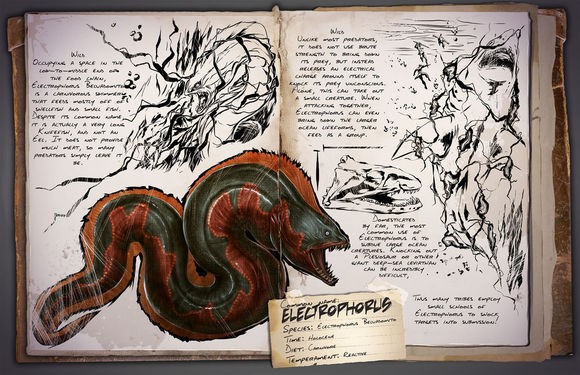 Wild
Occupying a space in the
low-to-middle end of
the food chain,
Electrophorus Beluadomito
is a carnivorous swimmer
that feeds mostly off of
shellfish and small fish.
Despite its common name,
it is actually a very long
Knifefish, and not an
Eel. It does not provide
much meat, so many
predators simply leave it
be.
Wild
Unlike most predators,
it does not use brute
strength to bring down
its prey, but instead
releases an electrical
charge around itself to
knock its prey unconscious.
Alone, this can take out
a small creature. When
attacking together,
Electrophorus can even
bring down the larger
ocean lifeforms, then
feed as a group.
Domesticated
By far, the most
common use of
Electrophorus is to
subdue large ocean
creatures. Knocking out
a Plesiosaur or other
giant deep-sea leviathan
can be incredibly
difficult,
thus many tribes employ
small schools of
Electrophorus to shock
targets into submission.
Common Name:
Electrophorus
Species: Electrophorus Beluadomito
Time: Holocene
Diet: Carnivore
Temperament: Reactive